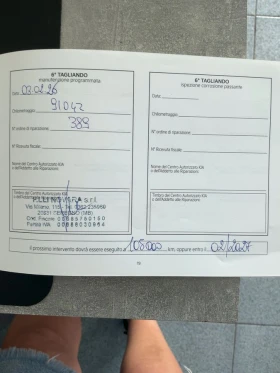 6° TAGLIANDO
manutenzione programmata
Data 03.02.26
Chilometraggio 91042
N° ordine di riparazione: 389
N° Ricevuta fiscale:
Nome del Centro Autorizzato KIA
o dell'Addetto alle Riparazioni
Timbro del Centro Autorizzato KIA
o dell'Addetto alle Riparazioni
Via Milano,
6° TAGLIANDO
ispezione corrosione passante
Data:
Chilometraggio:
N° ordine di riparazione:
N° Ricevuta fiscale:
Nome del Centro Autorizzato KIA
o dell'Addetto alle Riparazioni
Timbro del Centro Autorizzato KIA
o dell'Addetto alle Riparazioni
Il prossimo intervento dovrà essere eseguito a 108000 km, oppure entro il 02/2027